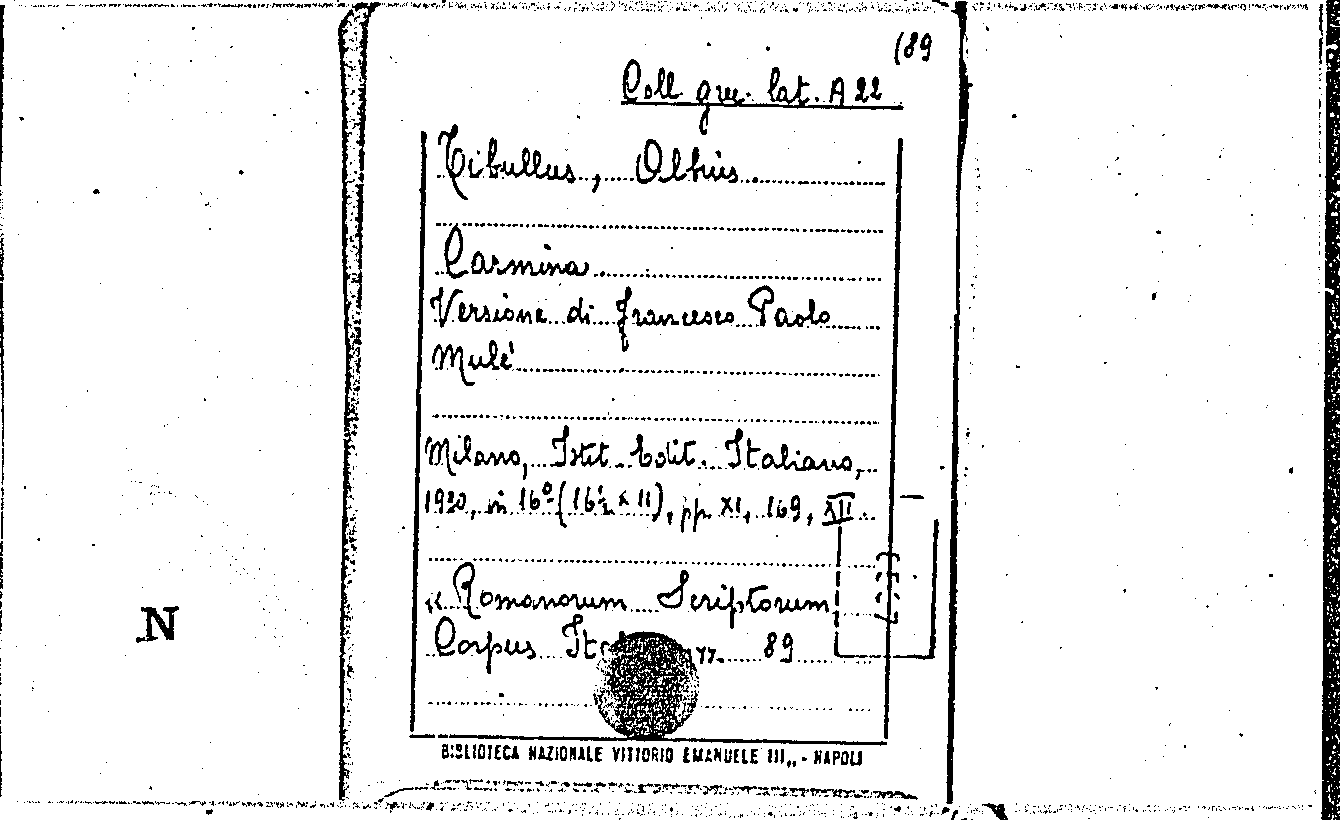 (89
Coll. gre. lat. A 22
Tibullus, Albius.
Carmina.
Versione di Francesco Paolo
Mulè
Milano, Istit. Edit. Italiano,
1930, in 16º (16½ x 11), pp. XI, 169, XII.
« Romanorum Scriptorum
Corpus 89
BIBLIOTECA NAZIONALE VITTORIO EMANUELE III„ - NAPOLI
N